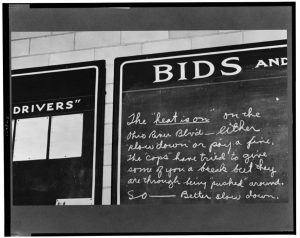 DRIVERS"
BIDS AND
The "heat is on" on the
Ohio River Blv'd — either
slow down or pay a fine.
The "Cops" have tried to give
some of you a break but they
are through being "pushed" around.
So — Better slow down.